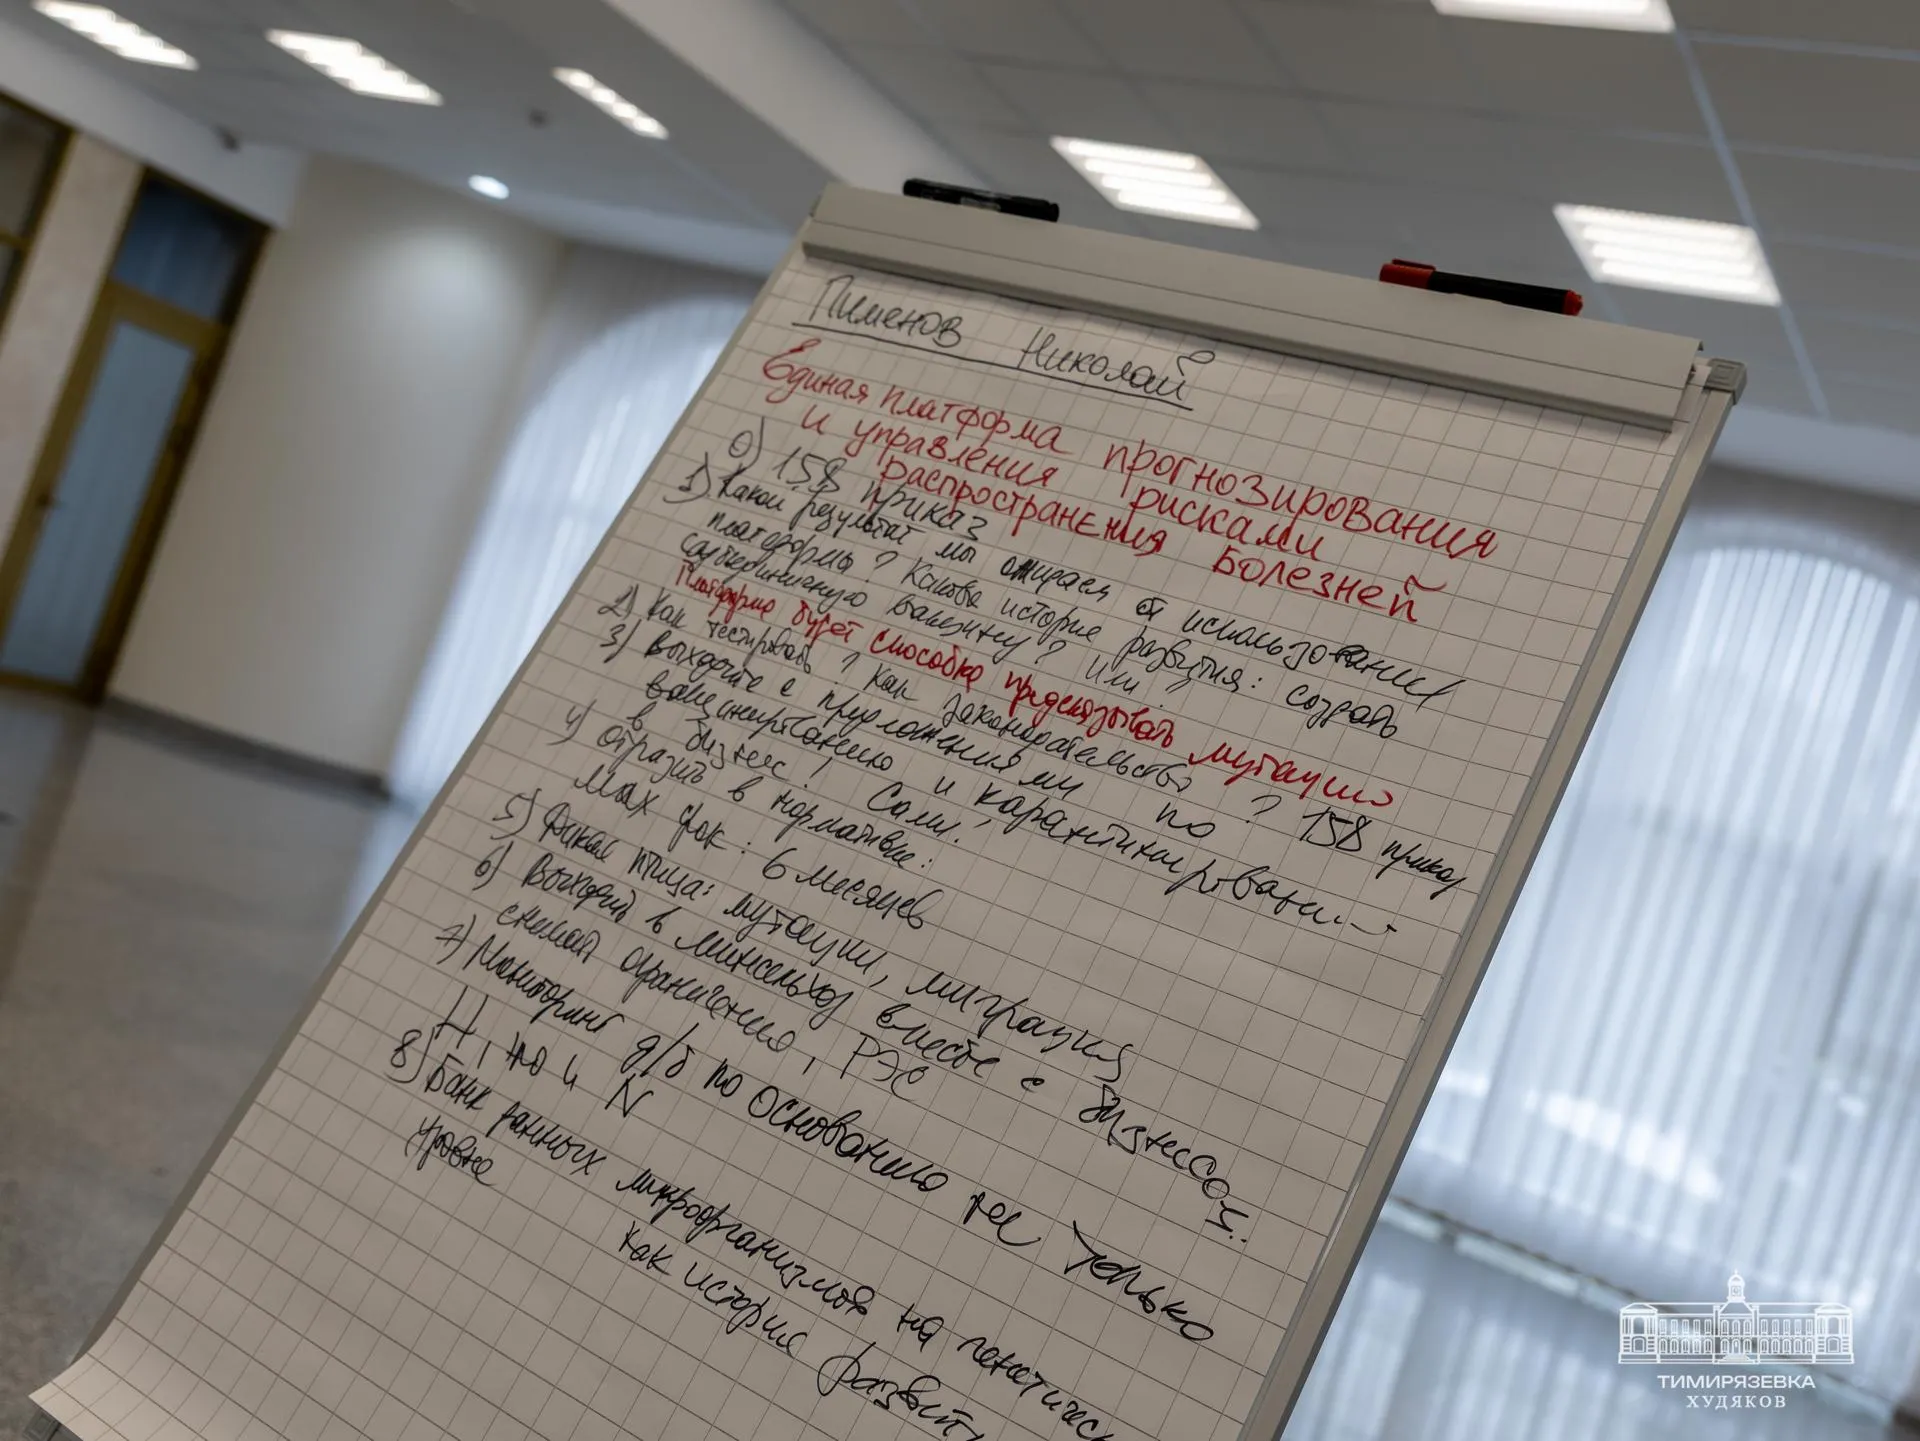 Пименов Николай
Единая платформа прогнозирования
и управления рисками
распространения болезней
0) 158 приказ
1) Какой результат мы ожидаем от использования
платформы? Какова история развития: создать
субъединичную вакцину? Или?
Платформа будет способна предсказывать мутацию
2) Как тестировать? Как законодательство? 158 приказ
3) Выходите с предложениями по
вакцинированию и карантинировани
в бизнес! Сами!
4) Отразить в нормативке:
max срок: 6 месяцев
5) Дикая птица: мутации, миграция
6) Выходить в минсельхоз вместе с бизнесом..
снимать ограничения, РЭС
7) Мониторинг д/б по основанию не только
H, но и N
8) Банк данных микроорганизмов на генетическ
уровне
как история развит
ТИМИРЯЗЕВКА
ХУДЯКОВ